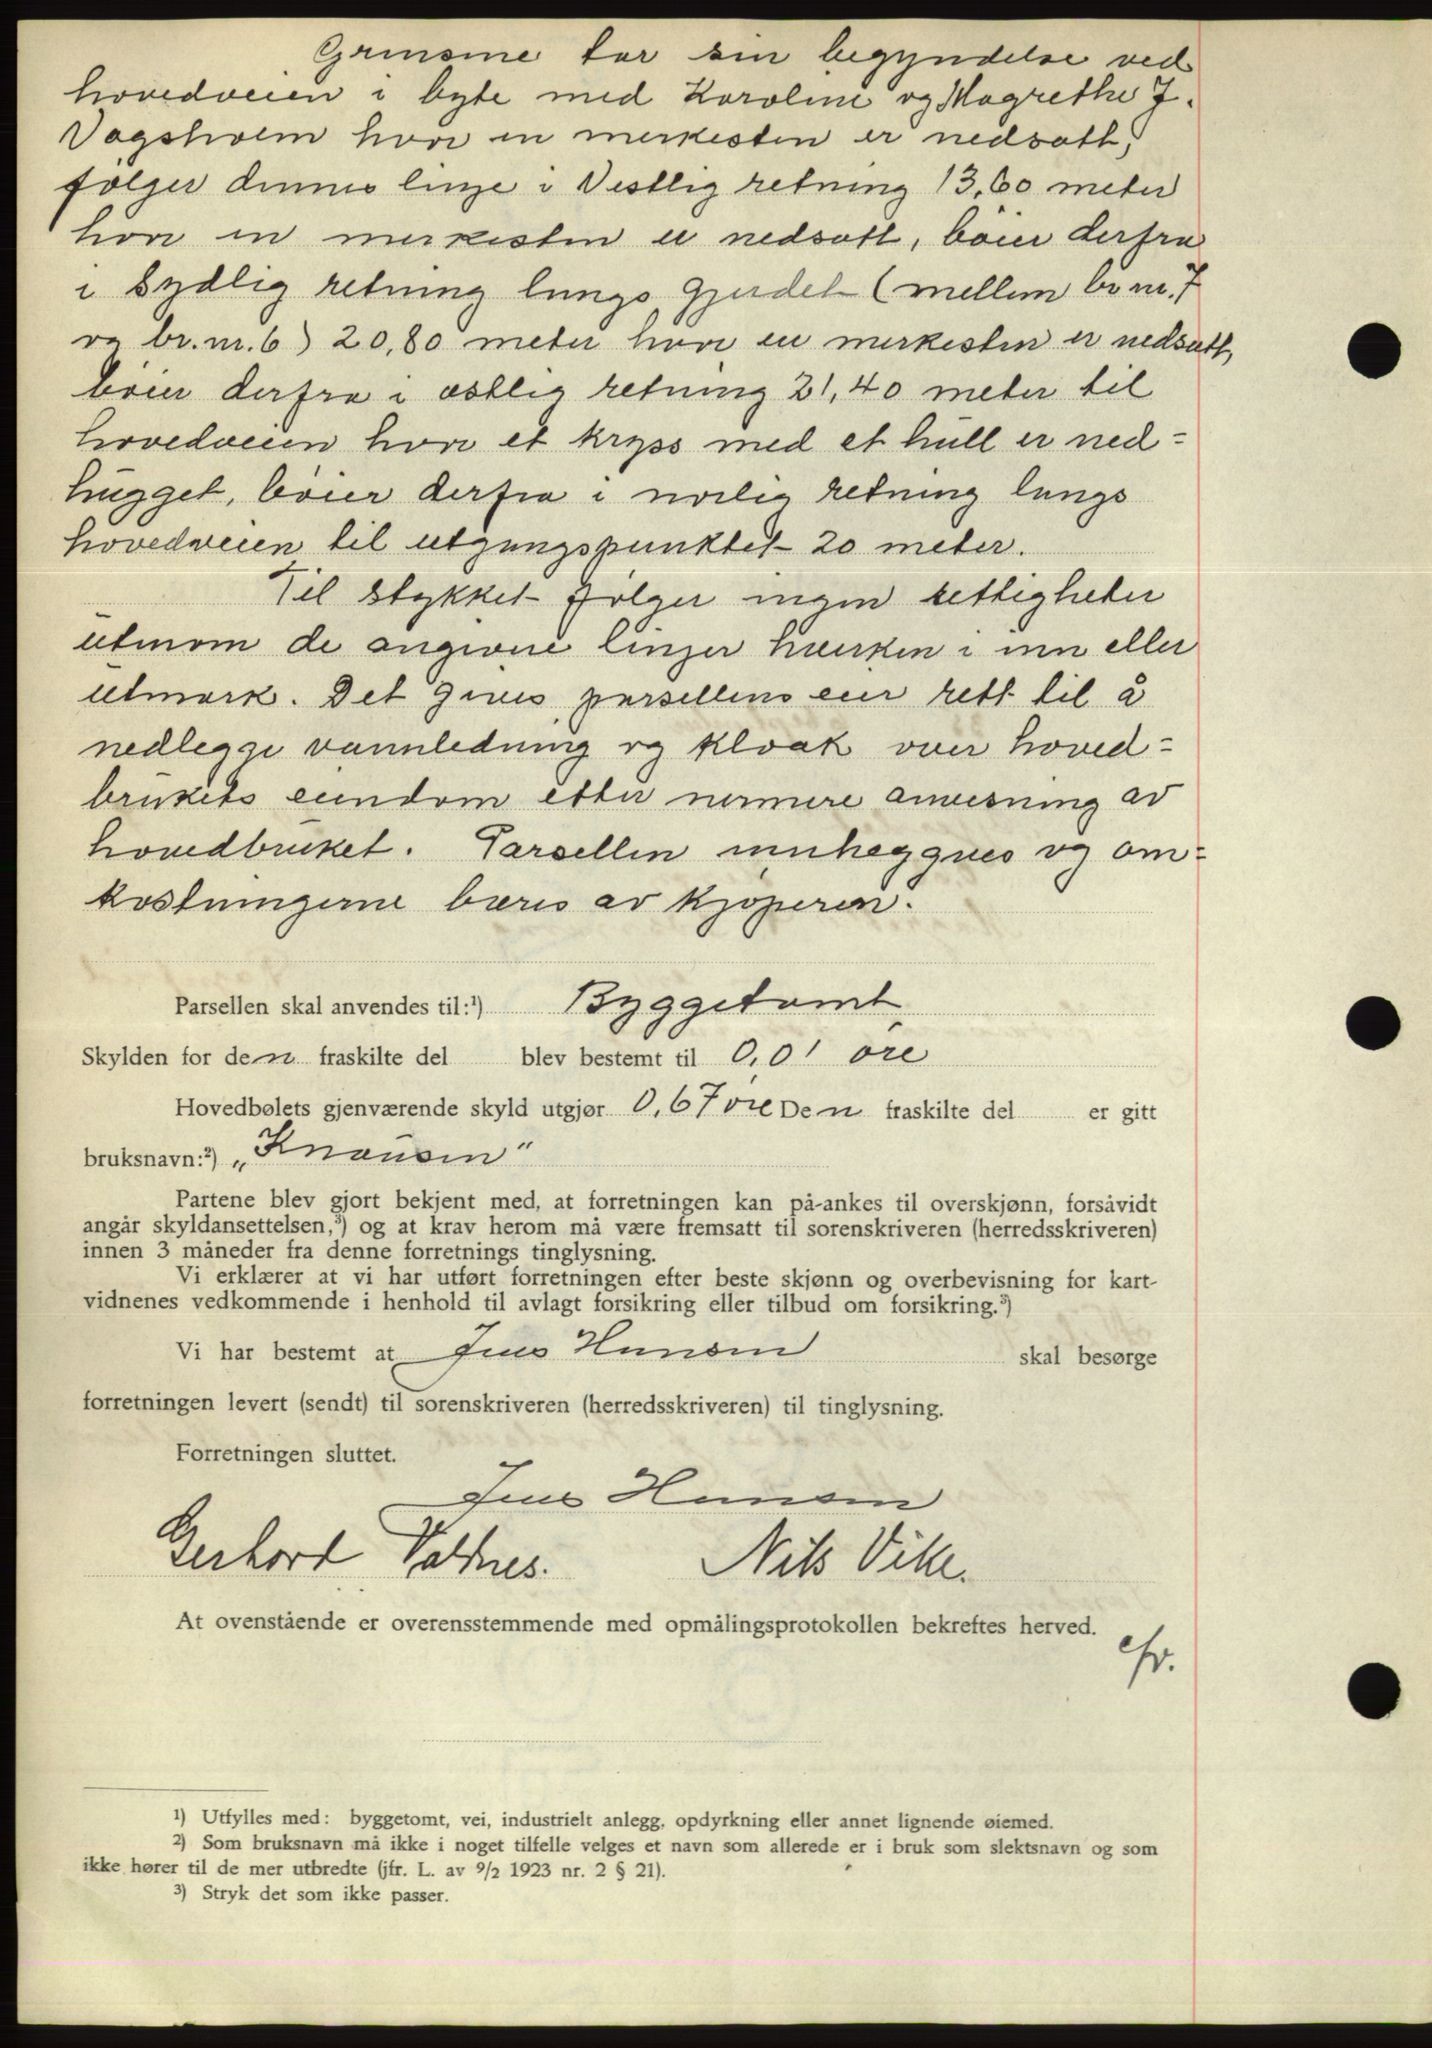 Grensene tar sin begyndelse ved
hovedveien i byte med Karoline og Magrethe J.
Vagsholm hvor en merkesten er nedsatt,
følger dennes linje i Vestlig retning 13,60 meter
hvor en merkesten er nedsatt, bøier derfra
i Sydlig retning langs gjerdet (mellem br.nr. 7
og br.nr. 6) 20,80 meter hvor en merkesten er nedsatt,
bøier derfra i østlig retning 21,40 meter til
hovedveien hvor et kryss med et hull er ned=
hugget, bøier derfra i norlig retning langs
hovedveien til utgangspunktet 20 meter.
Til stykket følger ingen rettigheter
utenom de angivne linjer hverken i inn eller
utmark. Det gives parsellens eier rett til å
nedlegge vannledning og kloak over hoved=
brukets eiendom etter nermere anvisning av
hovedbruket. Parsellen innhegnes og om=
kostningerne bæres av kjøperen.
Parsellen skal anvendes til:¹) Byggetomt
Skylden for den fraskilte del blev bestemt til 0,01 øre
Hovedbølets gjenværende skyld utgjør 0,67 øre Den fraskilte del er gitt
bruksnavn:²) „Knausen"
Partene blev gjort bekjent med, at forretningen kan på-ankes til overskjønn, forsåvidt
angår skyldansettelsen,³) og at krav herom må være fremsatt til sorenskriveren (herredsskriveren)
innen 3 måneder fra denne forretnings tinglysning.
Vi erklærer at vi har utført forretningen efter beste skjønn og overbevisning for kart-
vidnenes vedkommende i henhold til avlagt forsikring eller tilbud om forsikring.³)
Vi har bestemt at Jens Hansen skal besørge
forretningen levert (sendt) til sorenskriveren (herredsskriveren) til tinglysning.
Forretningen sluttet.
Jens Hansen
Gerhard Valdnes. Nils Vike.
At ovenstående er overensstemmende med opmålingsprotokollen bekreftes herved.
¹) Utfylles med: byggetomt, vei, industrielt anlegg, opdyrkning eller annet lignende øiemed.
²) Som bruksnavn må ikke i noget tilfelle velges et navn som allerede er i bruk som slektsnavn og som
ikke hører til de mer utbredte (jfr. L. av 9/2 1923 nr. 2 § 21).
³) Stryk det som ikke passer.